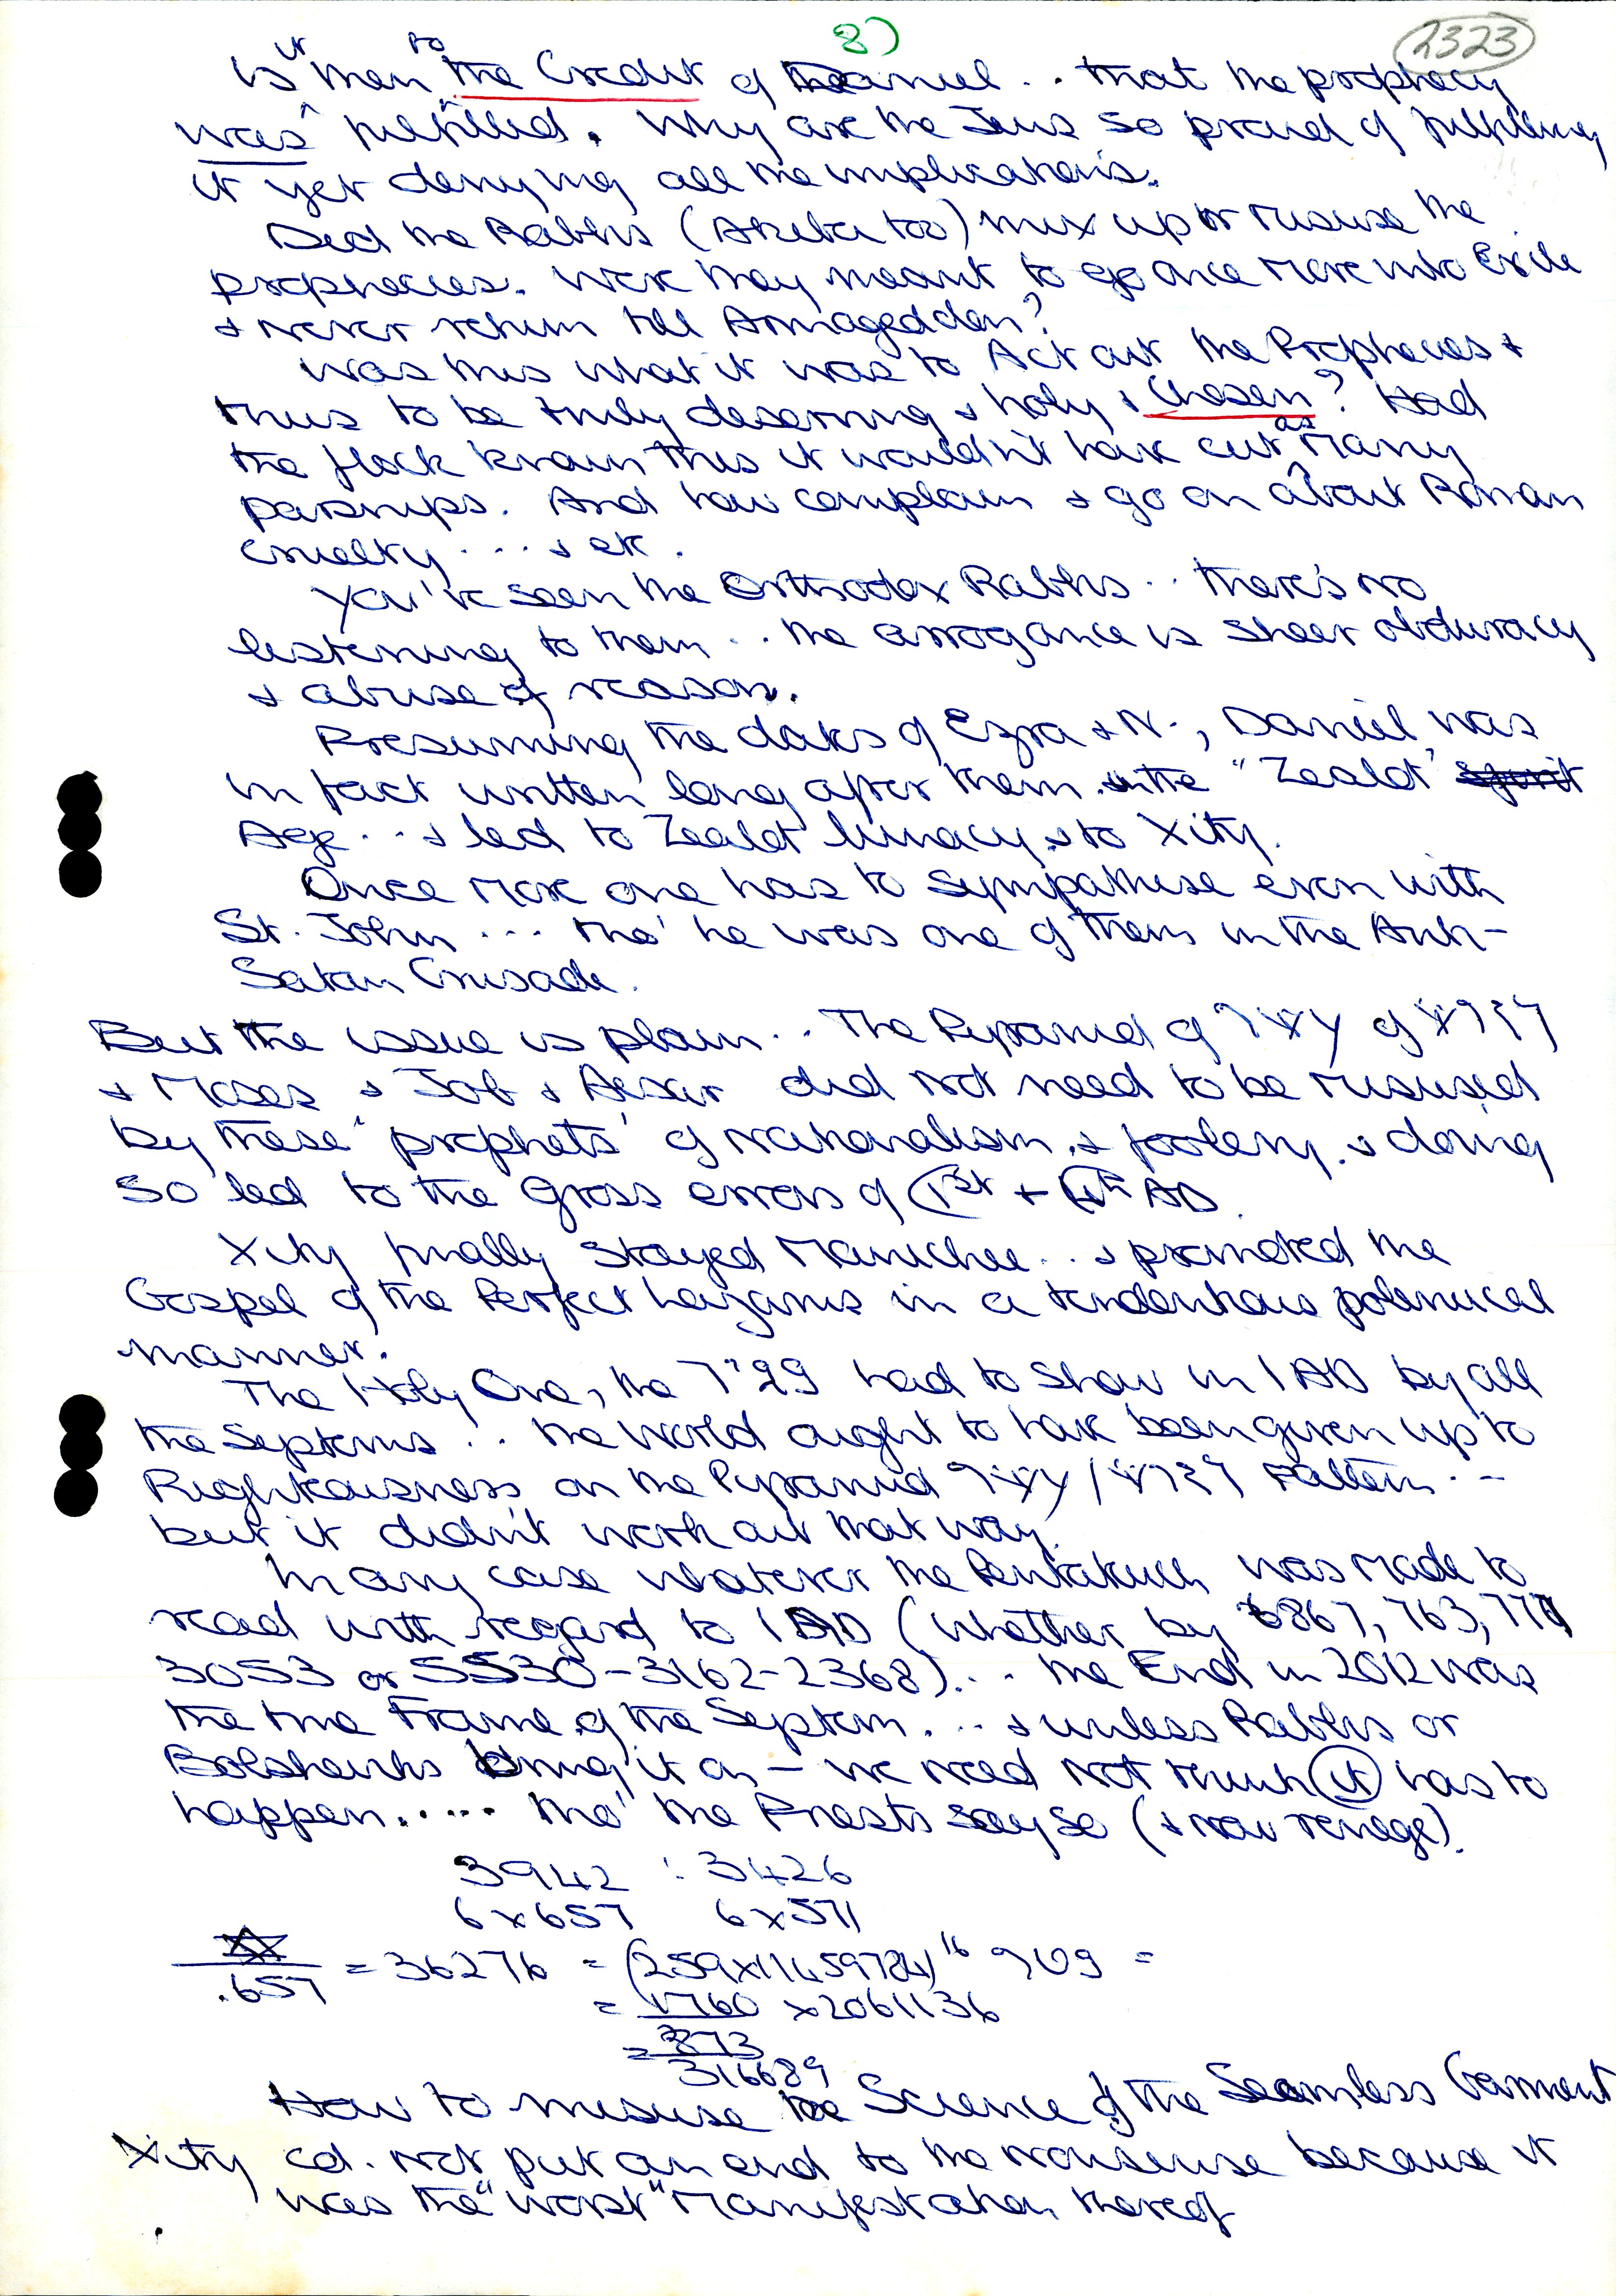 8)
2323
Is it then to the Credit of Daniel .. that the prophecy
was fulfilled. Why are the Jews so proud of fulfilling
it yet denying all the implications.
Did the Rabbis (Akeba too) mix up or misuse the
prophecies. Were they meant to go once more into Exile
& never return till Armageddon?
Was this what it was to Act out the Prophecies &
thus to be truly deserving & holy & Chosen? Had
the flock known this it wouldn't have cut as many
parsnips. And how complain & go on about Roman
cruelty ... & etc.
You've seen the Orthodox Rabbis .. there's no
listening to them .. the arrogance is sheer obduracy
& abuse of reason.
Presuming the dates of Ezra & N., Daniel was
in fact written long after them in the "Zealot" spirit
Age ... & led to Zealot lunacy & to Xity.
Once more one has to sympathise even with
St. John ... tho' he was one of them in the Anti-
Satan Crusade.
But the issue is plain .. The Pyramid of of
& Moses & Job & did not need to be misused
by these 'prophets' of nationalism & foolery & doing
so led to the Gross errors of 1st + 4th AD.
Xity finally stayed Manichee .. & promoted the
Gospel of the Perfect in a tendentious polemical
manner.
The Holy One, the had to show in 1 AD by all
the Septerns .. the World ought to have been given up to
Righteousness on the Pyramid Pattern ..
but it didn't work out that way.
In any case whatever the Pentateuch was made to
read with regard to 1 AD (whether by 867, 763, 777
3053 or 5530 - 3162 - 2368) .. the End in 2012 was
the time Frame of the Septern ... & unless Rabbis or
Bolsheviks bring it on - we need not think it has to
happen ..... tho' the Priests say so (& now renege).
3942 : 3426
6 x 657 6 x 571
.657 = 36276 = (259 x 11459784)16 =
= 1760 x 2061136
= 873
316689
How to misuse the Science of the Seamless Garment
Xity cd. not put an end to the nonsense because it
was the "worst" Manifestation thereof